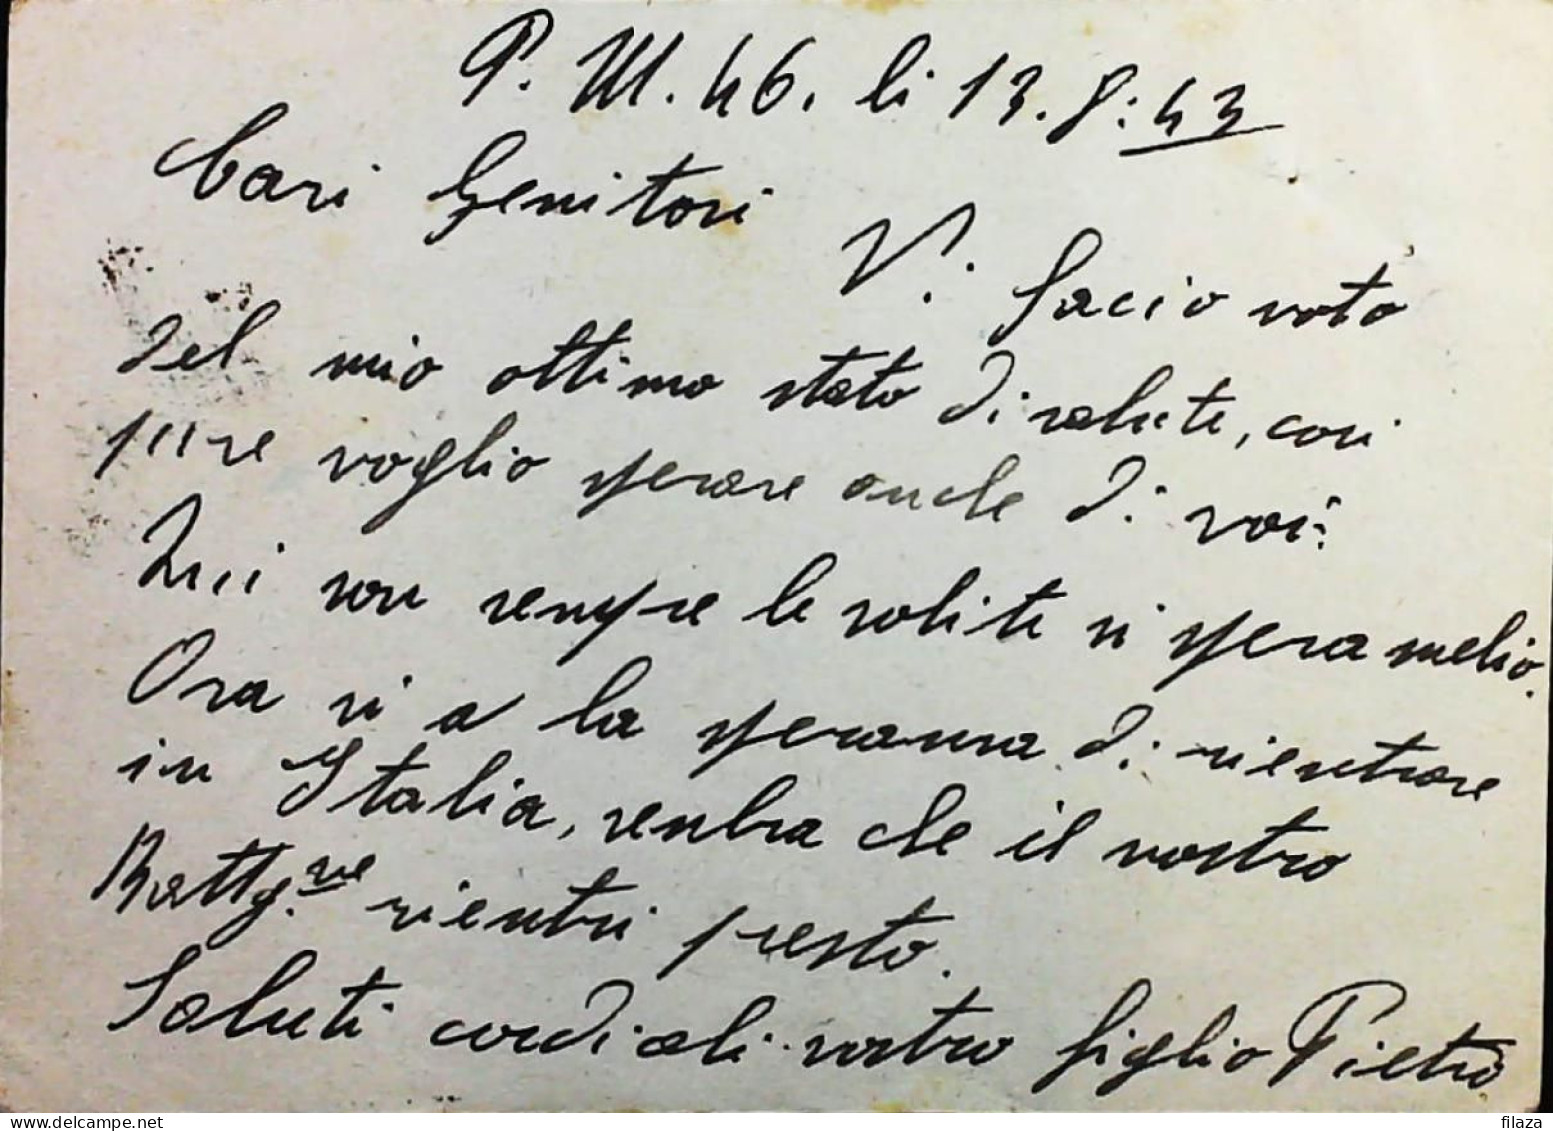 P. M. 46. li 13. 8: 43
Cari Genitori
V. facio noto
del mio ottimo stato di salute, cosi
pure voglio sperare anche di voi:
Qui son sempre le solite si spera melio.
Ora si a la speransa di rientrare
in Italia, senbra che il nostro
Battg.ne rientri presto.
Saluti cordiali vostro figlio Pietro
filaza